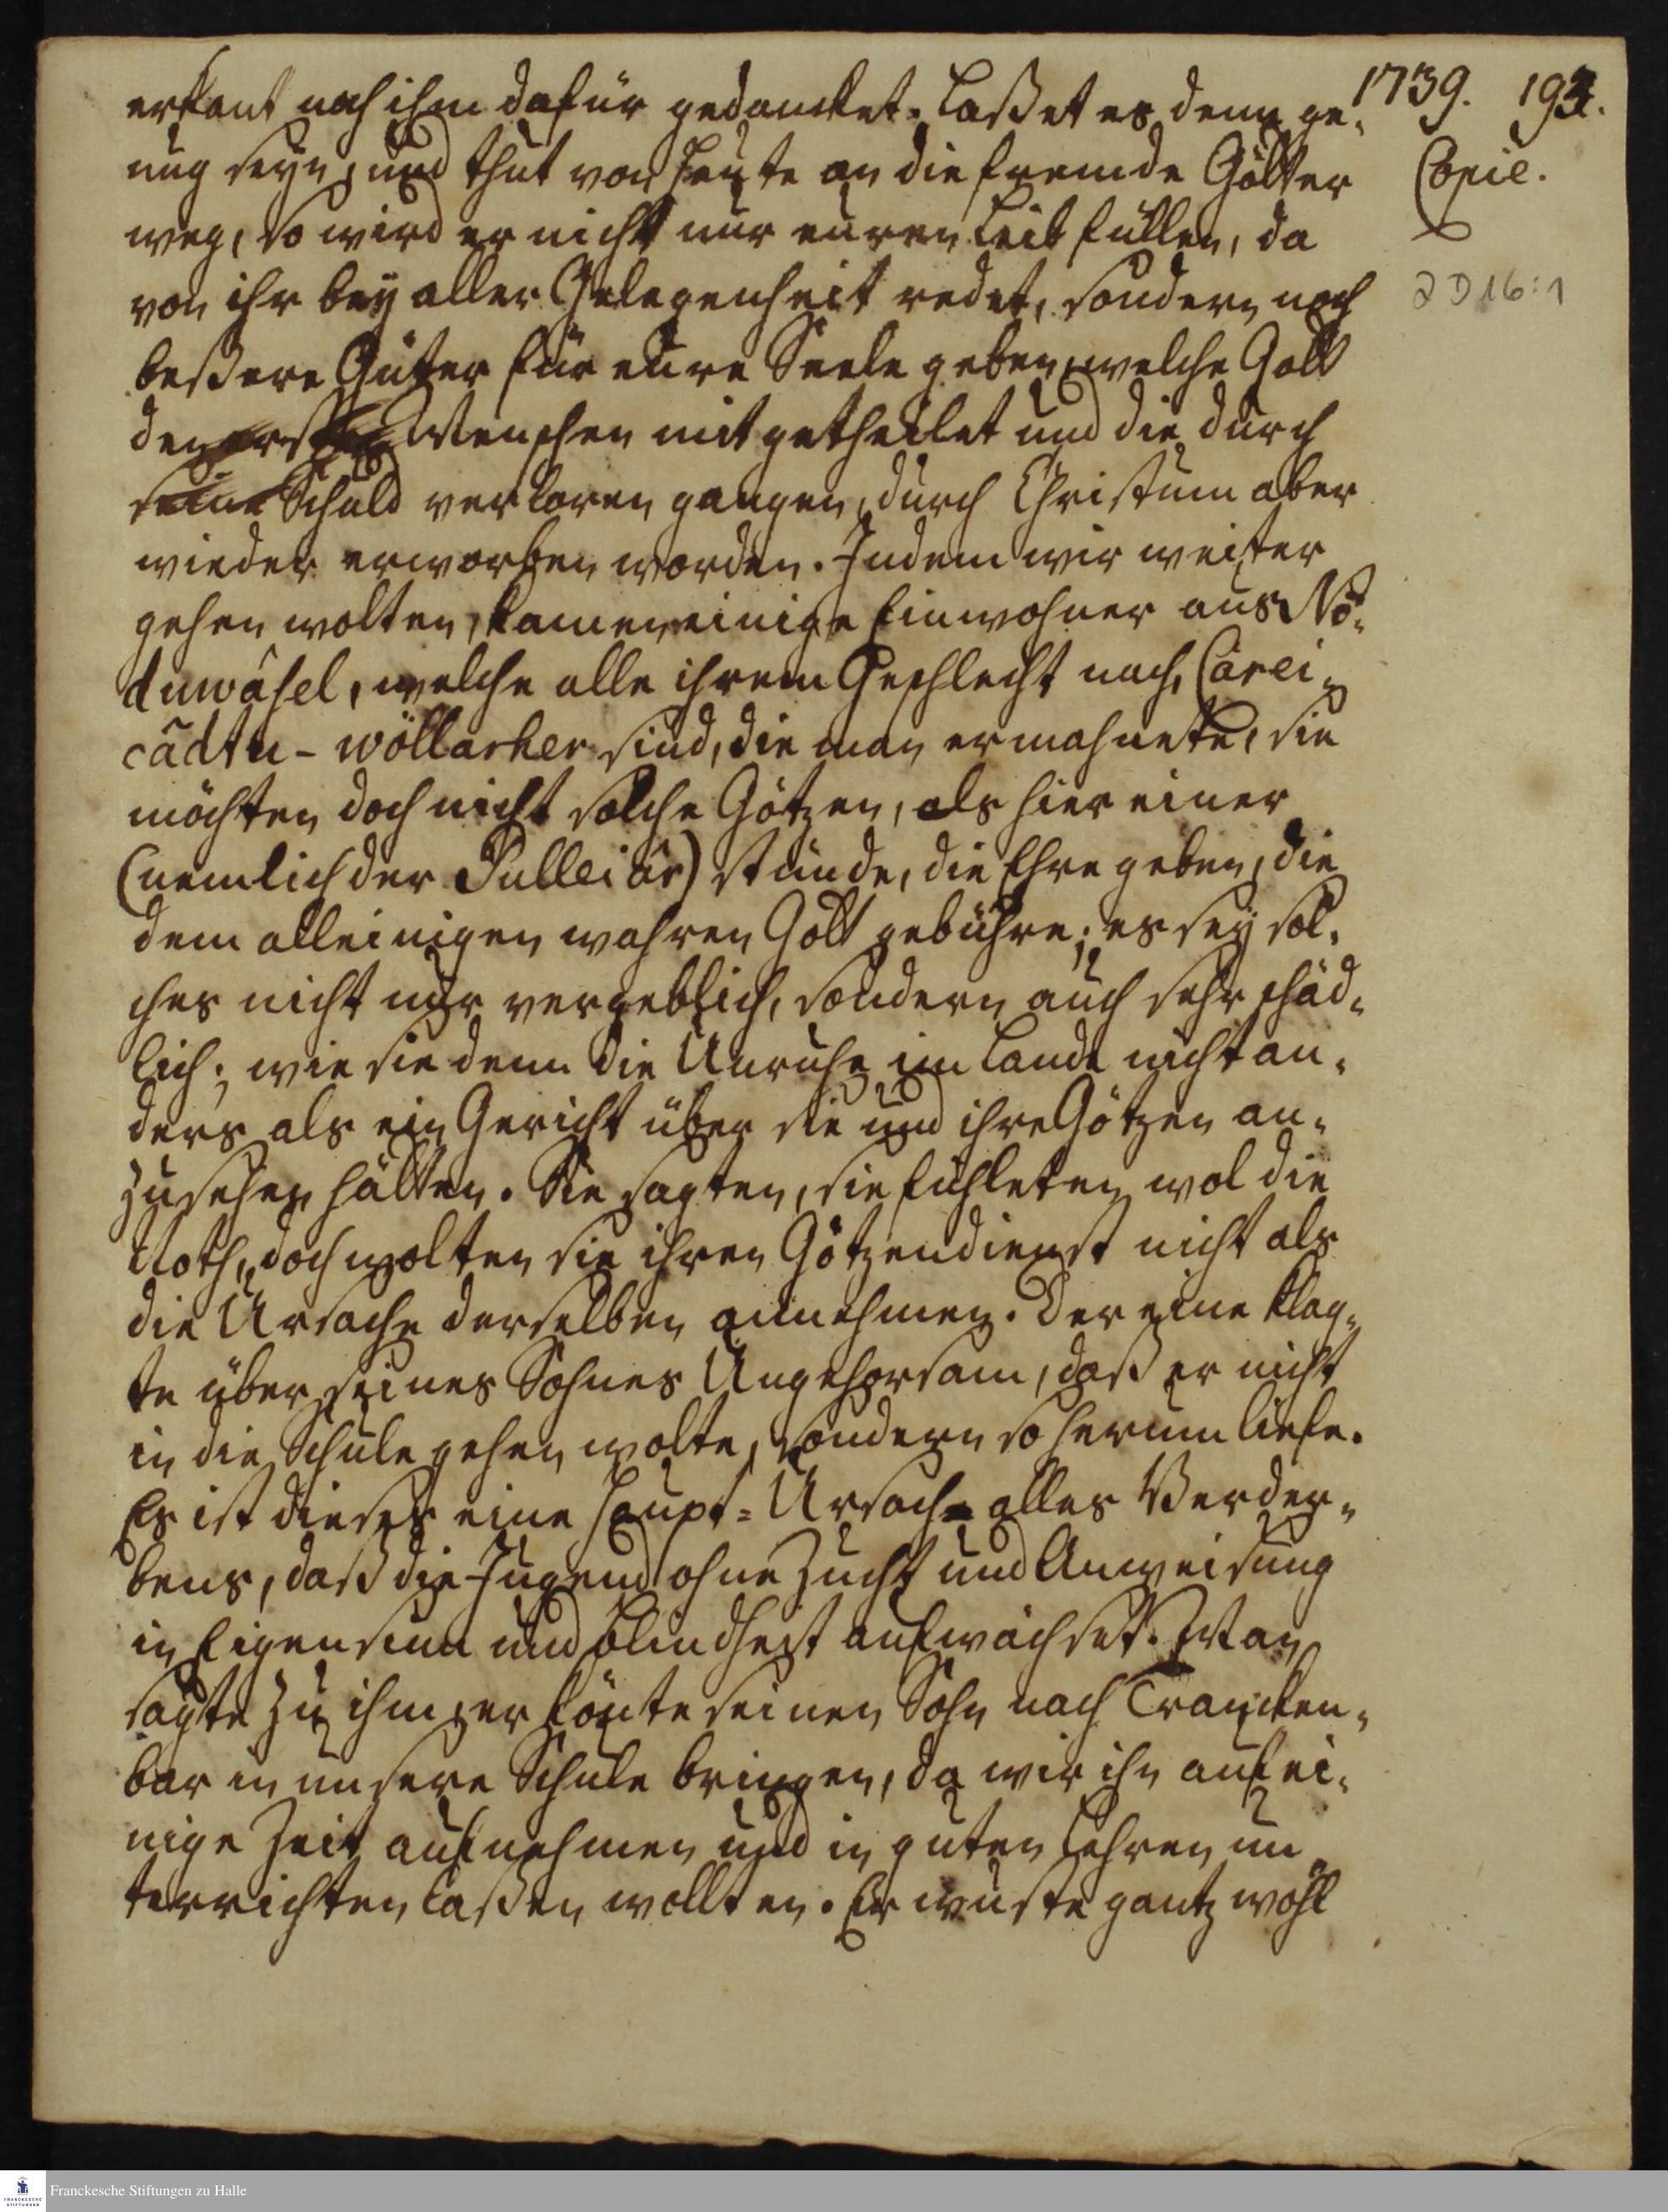 1739. 193.
Copie.
2 D 16:1
erkant noch ihm dafür gedancket. Laßet es denn ge-
nug seyn, und thut von heute an die fremde Götter
weg, so wird er nicht nur euren Leib füllen, da
von ihr bey aller Gelegenheit redet, sondern noch
beßere Güter für eure Seele geben, welche Gott
den ersten Menschen mitgetheilet und die durch
seine Schuld verloren gangen, durch Christum aber
wieder erworben worden. Indem wir weiter
gehen wolten, kamen einige Einwohner aus No-
duwâsel, welche alle ihrem Geschlecht nach, Cârei-
câdtu-wöllarher sind, die man ermahnete, sie
möchten doch nicht solche Götzen, als hier einer
(nemlich der Pulleiâr) stünde, die Ehre geben, die
dem alleinigen wahren Gott gebühre; es sey sol-
ches nicht nur vergeblich, sondern auch sehr schäd-
lich; wie sie denn die Unruhe im Lande nicht an-
ders als ein Gericht über sie und ihre Götzen an-
zusehen hätten. Sie sagten, sie fühleten wol die
Noth, doch wolten sie ihren Götzendienst nicht als
die Ursache derselben annehmen. Der eine klag-
te über seines Sohnes Ungehorsam, daß er nicht
in die Schule gehen wolte, sondern so herum liefe.
Es ist dieses eine Haupt-Ursach alles Verder-
bens, daß die Jugend ohne Zucht und Anweisung
in Eigensinn und Blindheit aufwächset. Man
sagte zu ihm, er könte seinen Sohn nach Trancken-
bar in unsere Schule bringen, da wir ihn auf ei-
nige Zeit aufnehmen und in guten Lehren un-
terrichten laßen wollten. Er wuste gantz wohl
Franckesche Stiftungen zu Halle